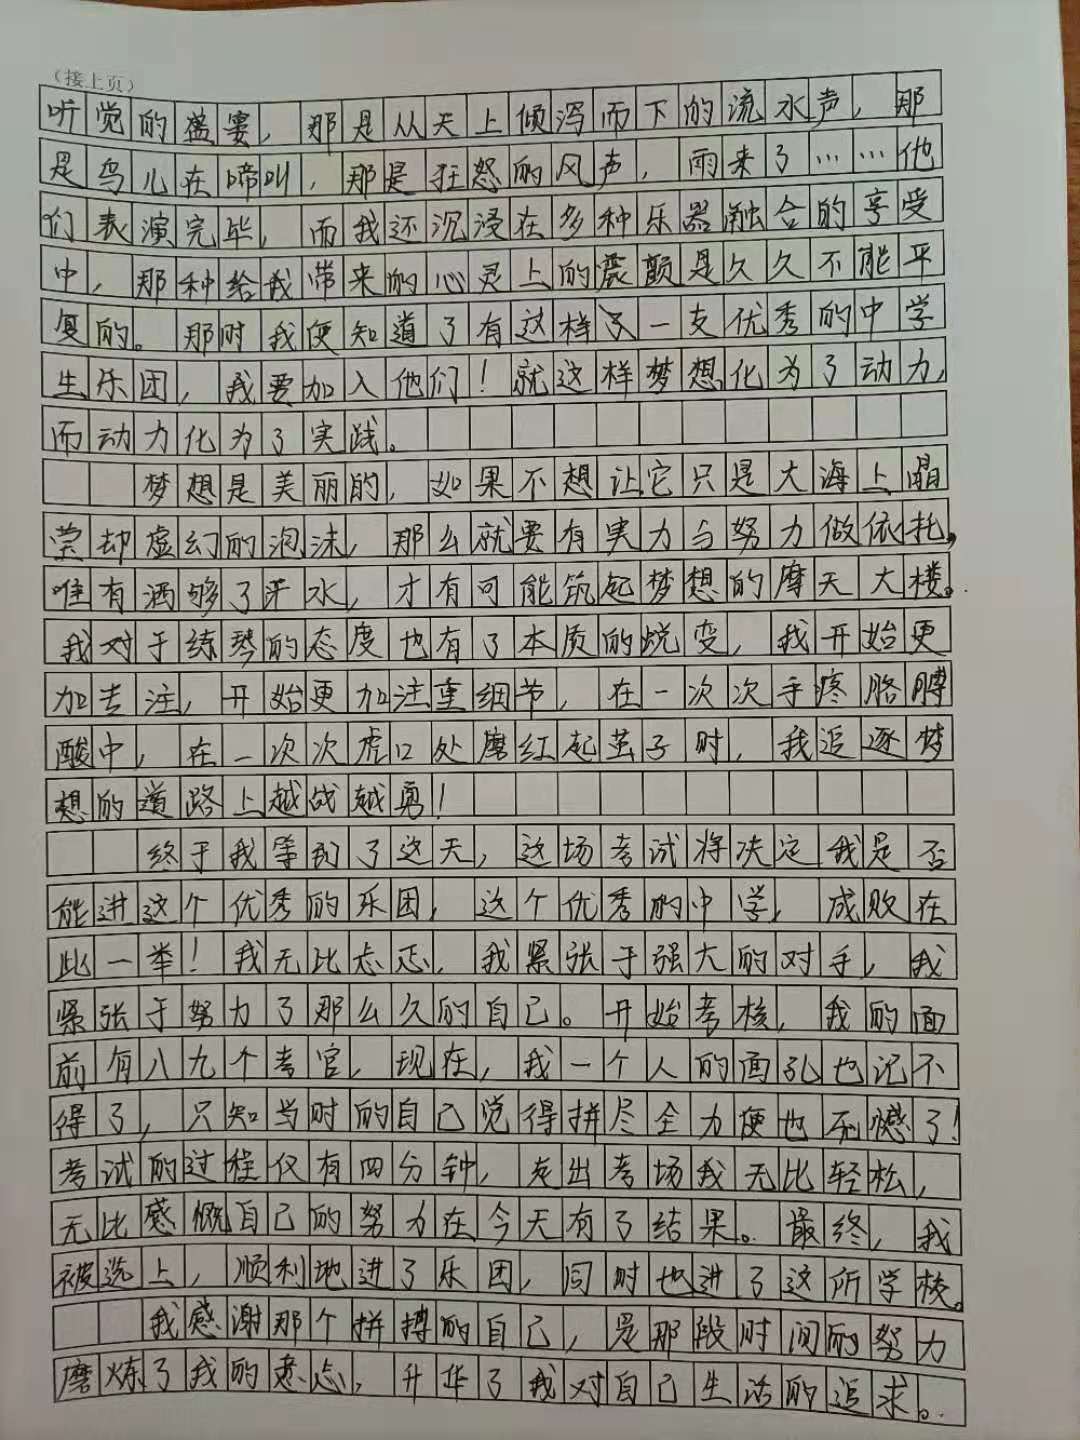 （接上页）
听觉的盛宴，那是从天上倾泻而下的流水声，那
是鸟儿在啼叫，那是狂怒的风声，雨来了……他
们表演完毕，而我还沉浸在多种乐器融合的享受
中，那种给我带来的心灵上的震颤是久久不能平
复的。那时我便知道了有这样一支优秀的中学
生乐团，我要加入他们！就这样梦想化为了动力，
而动力化为了实践。
梦想是美丽的，如果不想让它只是大海上晶
莹却虚幻的泡沫，那么就要有实力与努力做依托，
唯有洒够了汗水，才有可能筑起梦想的摩天大楼。
我对于练琴的态度也有了本质的蜕变，我开始更
加专注，开始更加注重细节，在一次次手疼胳膊
酸中，在一次次虎口处磨红起茧子时，我追逐梦
想的道路上越战越勇！
终于我等到了这天，这场考试将决定我是否
能进这个优秀的乐团，这个优秀的中学，成败在
此一举！我无比忐忑，我紧张于强大的对手，我
紧张于努力了那么久的自己。开始考核，我的面
前有八九个考官，现在，我一个人的面孔也记不
得了，只知当时的自己觉得拼尽全力便也无憾了！
考试的过程仅有四分钟，走出考场我无比轻松，
无比感慨自己的努力在今天有了结果。最终，我
被选上，顺利地进了乐团，同时也进了这所学校。
我感谢那个拼搏的自己，是那段时间的努力
磨炼了我的意志，升华了我对自己生活的追求。